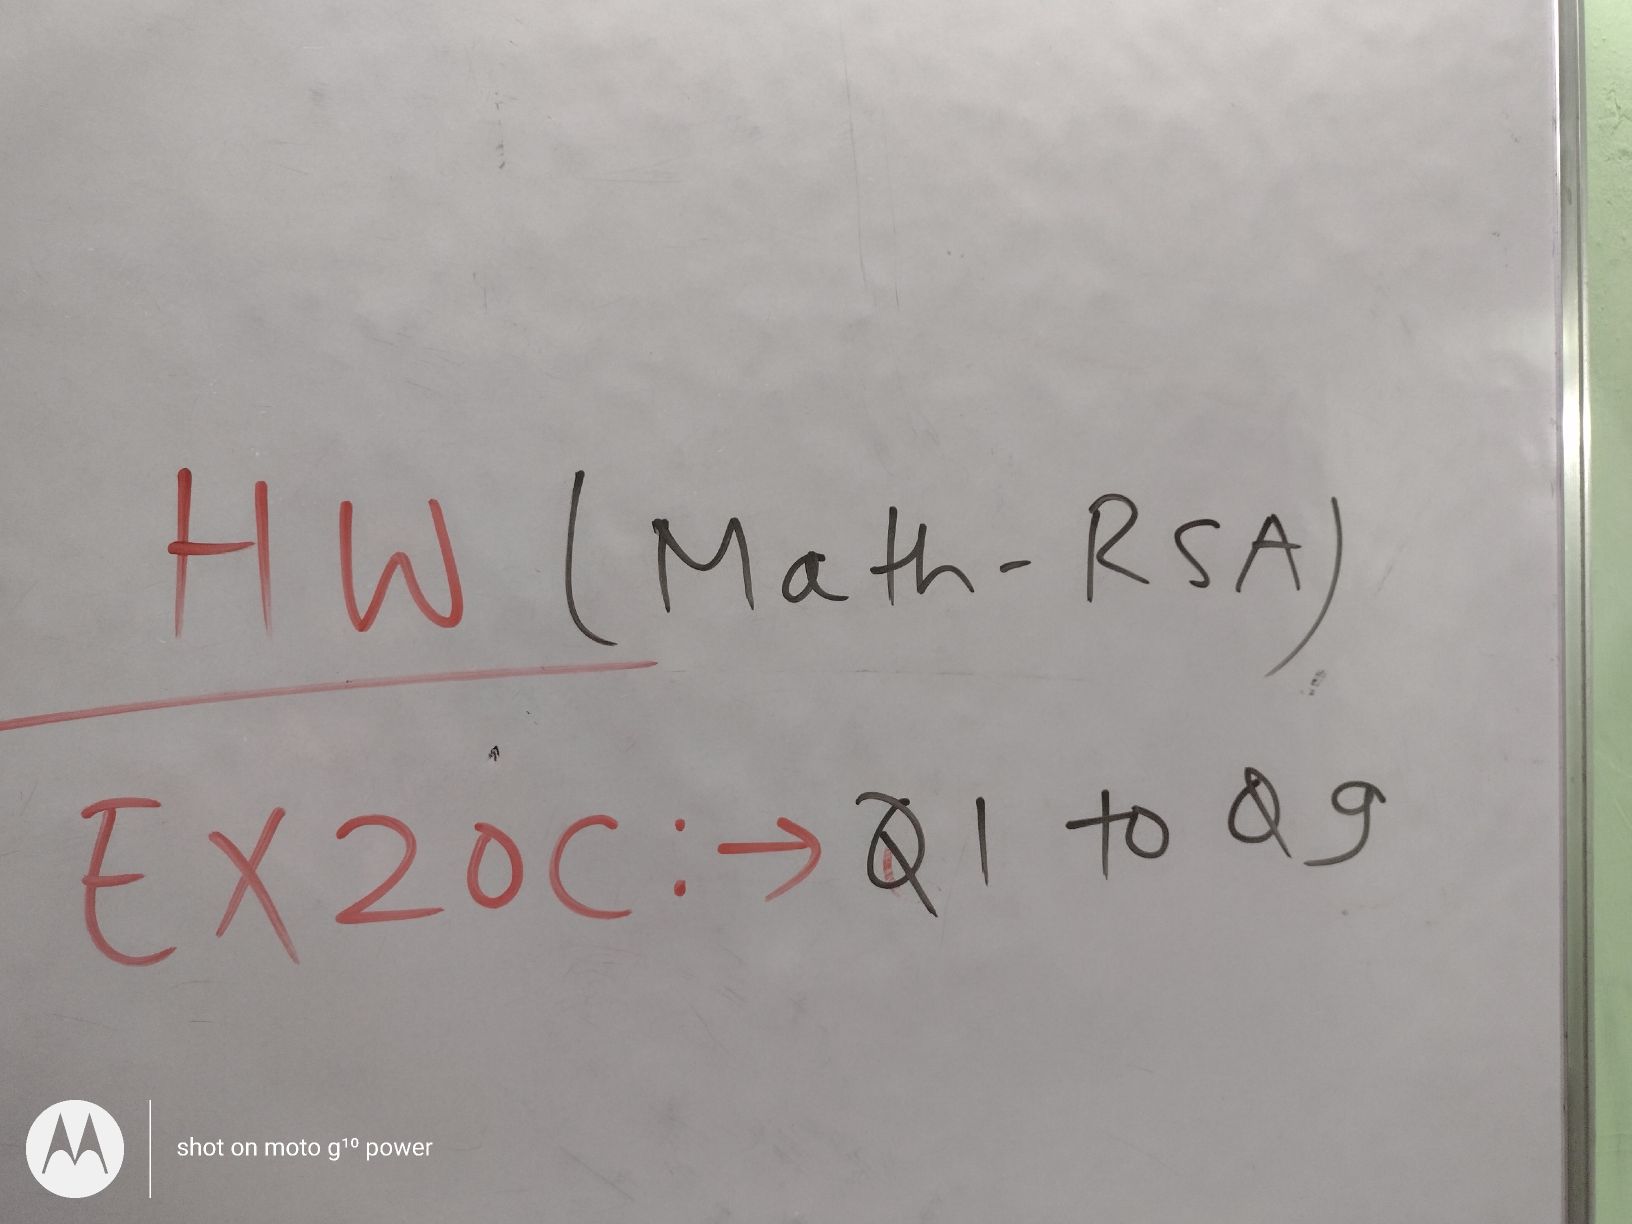 HW (Math-RSA)
EX20C:→Q1 to Q9
shot on moto g¹⁰ power